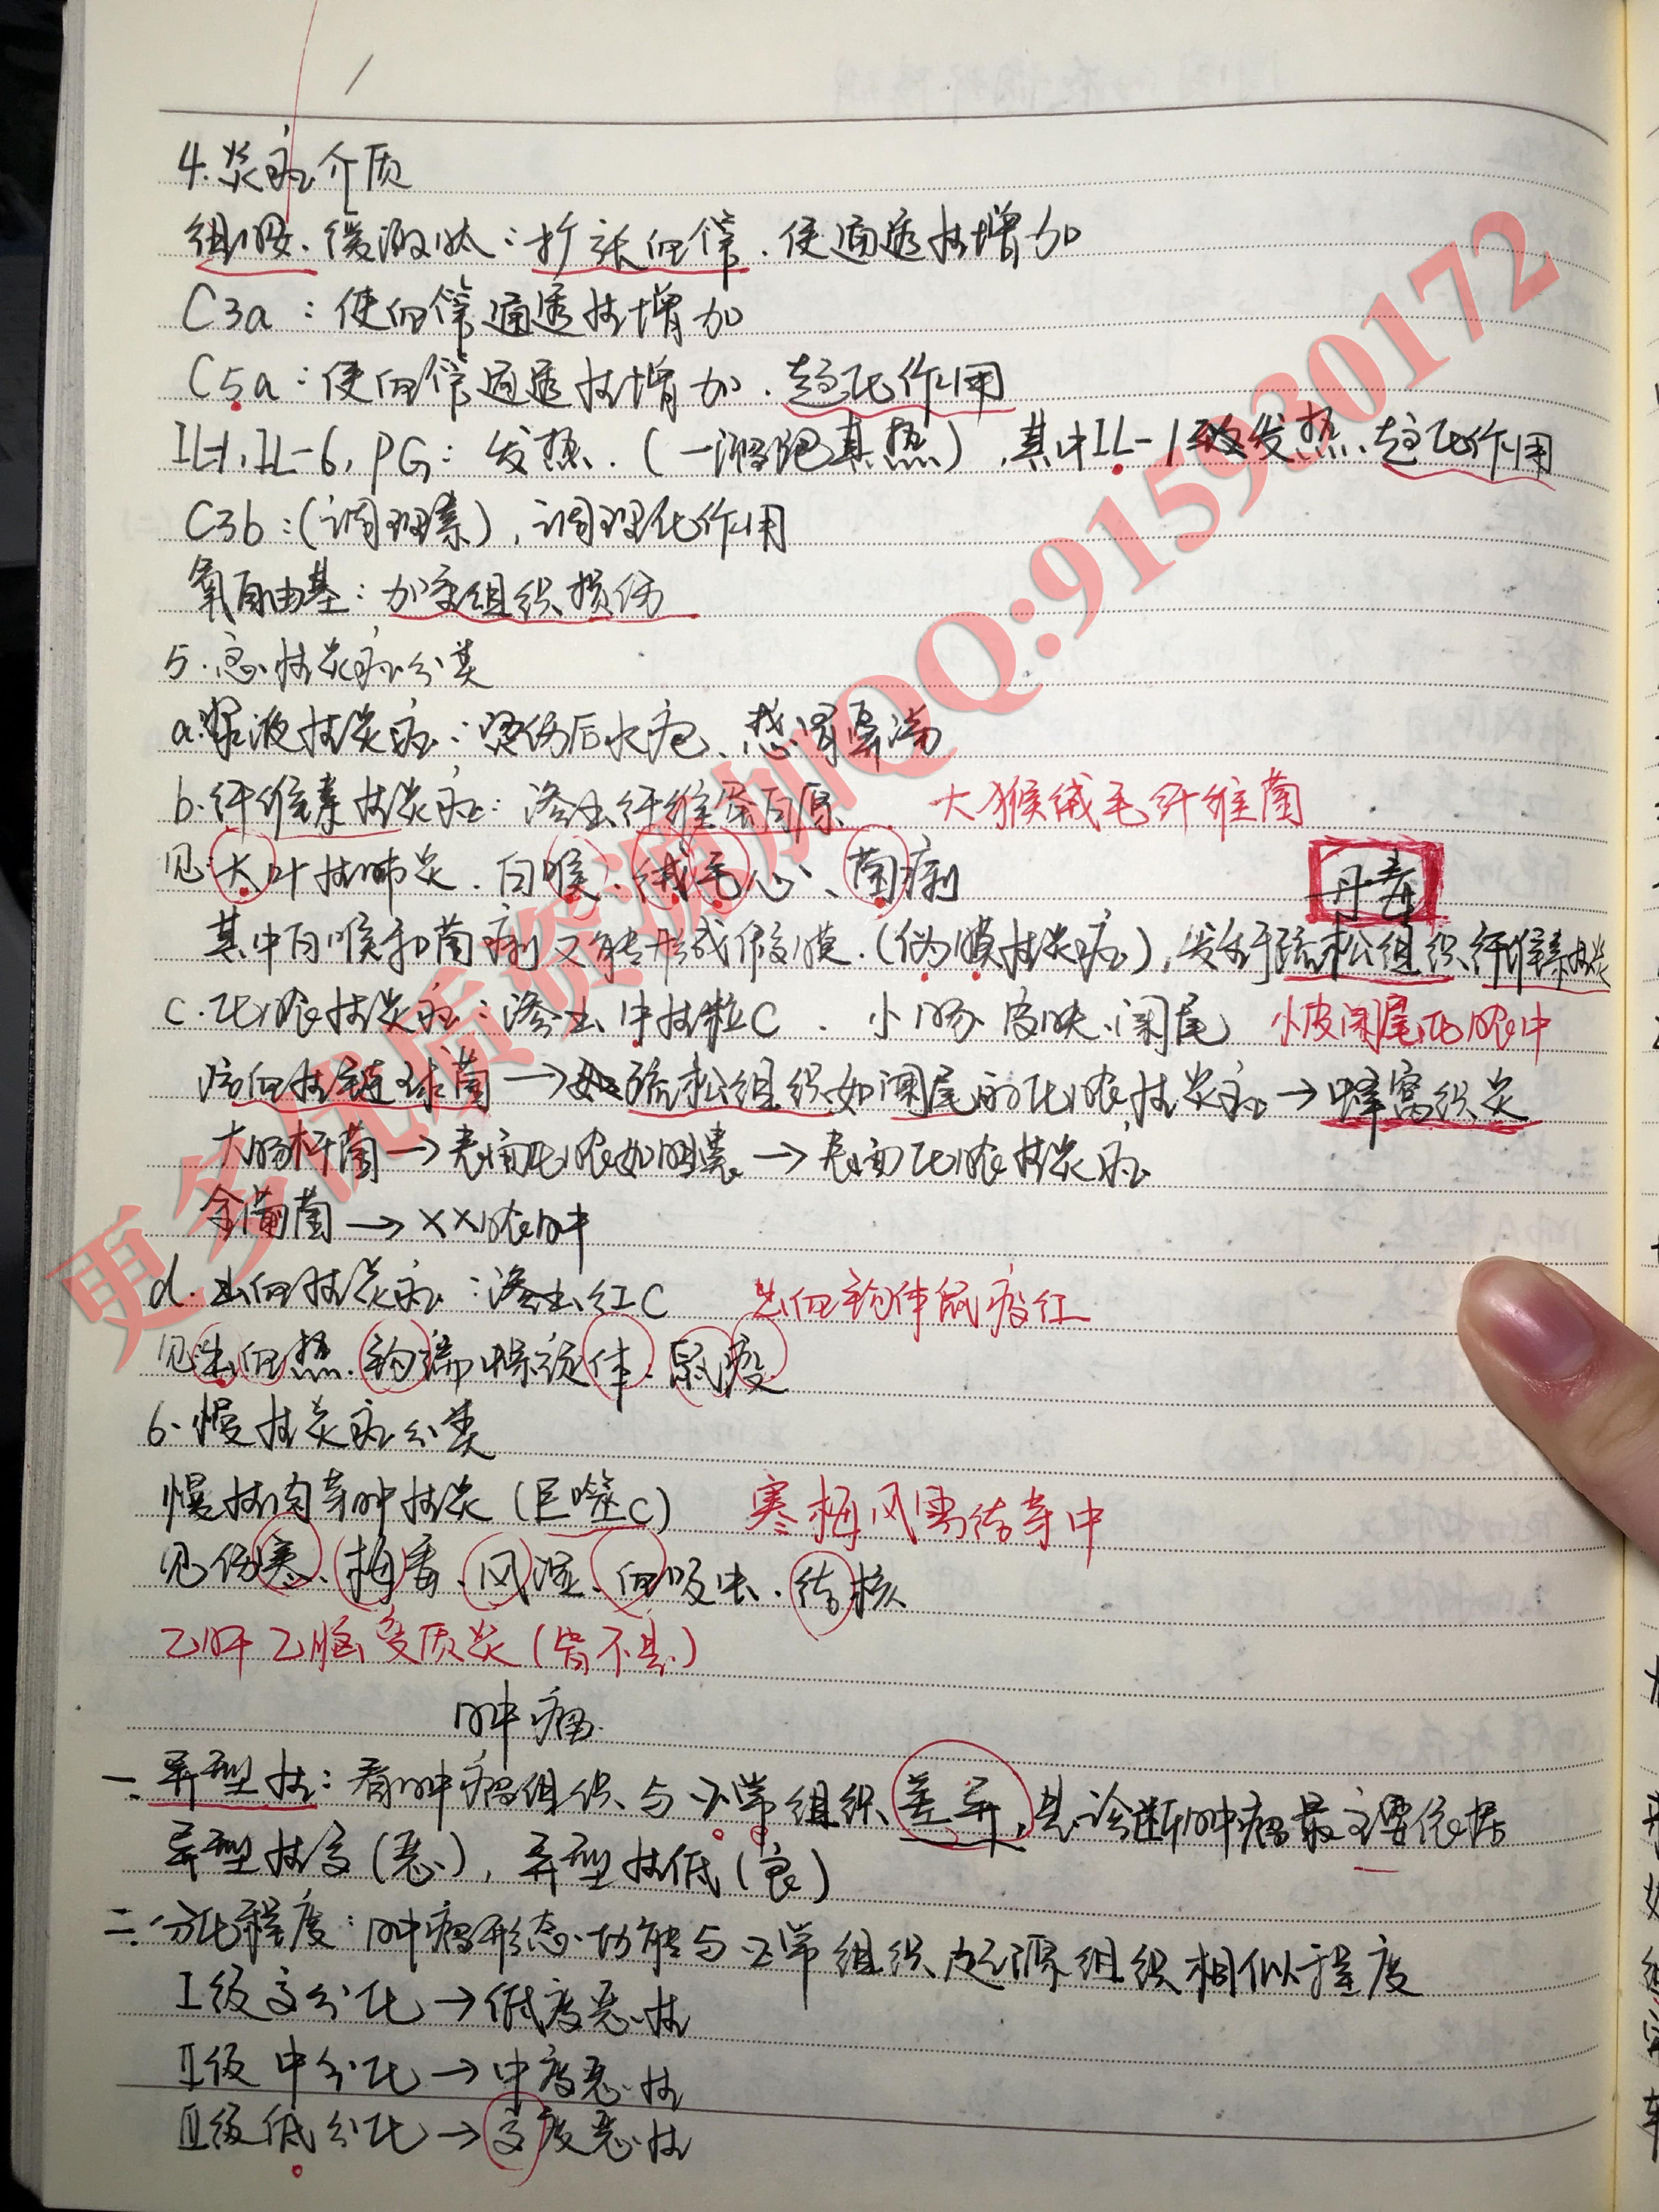 4.炎症介质
组胺、缓激肽:扩张血管、使通透性增加
C3a:使血管通透性增加
C5a:使血管通透性增加、趋化作用
IL-1,IL-6,PG:发热.(一般吧真热),其中IL-1致发热、趋化作用
C3b:(调理素),调理化作用
氧自由基:加重组织损伤
5.急性炎症分类
a.浆液性炎症:烫伤后水疱、感冒鼻涕
b.纤维素性炎症:渗出纤维蛋白原 大猴绒毛纤维菌
见:大叶性肺炎.白喉、绒毛心、菌痢
丹毒
其中白喉和菌痢又能形成假膜.(伪膜性炎症),发生于疏松组织纤维素性炎
c.化脓性炎症:渗出中性粒C.小肠、皮肤、阑尾 小皮阑尾化脓中
溶血性链球菌→如疏松组织如阑尾的化脓性炎症→蜂窝织炎
大肠杆菌→表面化脓如胆囊→表面化脓性炎症
金葡菌→××脓肿
d.出血性炎症:渗出红C 出血钩体鼠疫红
见:出血热.钩端螺旋体.鼠疫
6.慢性炎症分类
慢性肉芽肿性炎(巨噬C) 寒梅风雪结芽肿
见伤寒、梅毒、风湿、血吸虫.结核
乙肝乙脑变质炎(皆不是)
肿瘤
一.异型性:看肿瘤组织与正常组织差异,是诊断肿瘤最主要依据
异型性高(恶),异型性低(良)
二.分化程度:肿瘤形态.功能与正常组织起源组织相似程度
Ⅰ级高分化→低度恶性
Ⅱ级中分化→中度恶性
Ⅲ级低分化→高度恶性
更多优质资源加QQ:915930172